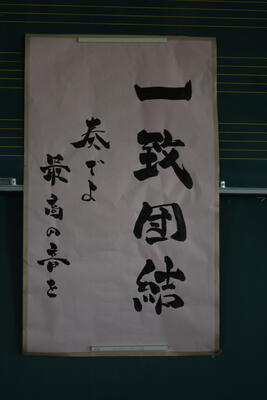 一致団結
奏でよ
最高の音を